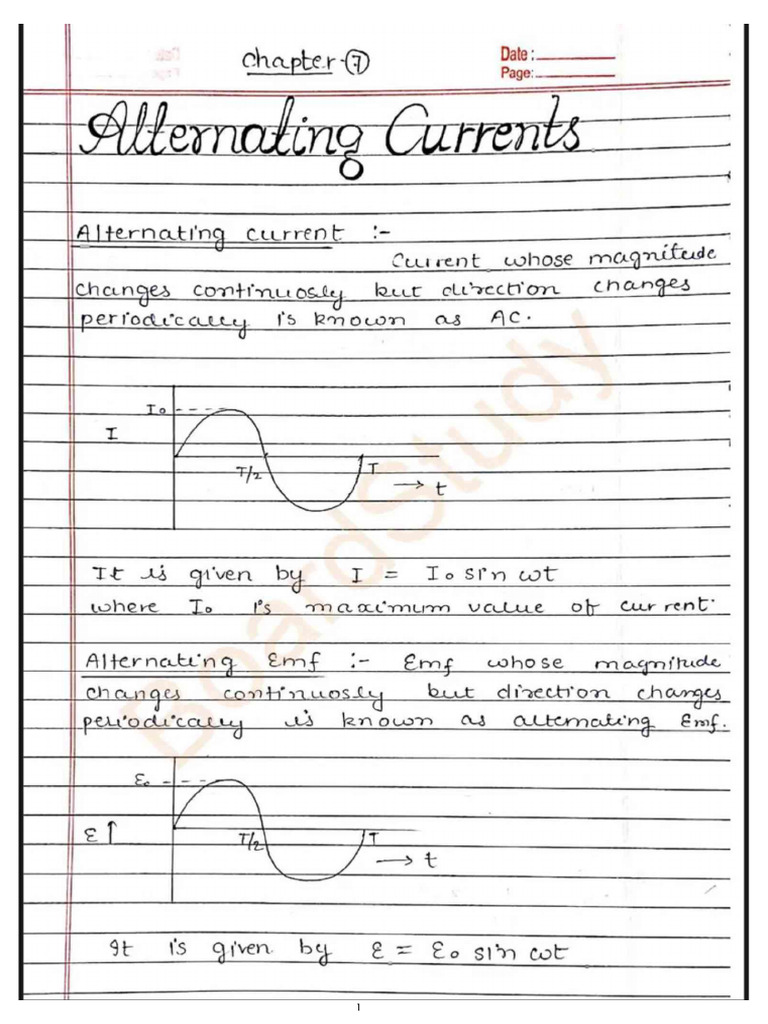 Chapter-7
Date:
Page:
Alternating Currents
Alternating current :-
Current whose magnitude
changes continuosly but direction changes
periodically is known as AC.
I₀
I
T/2
T
→ t
It is given by I = I₀ sin ωt
where I₀ is maximum value of current.
Alternating Emf :- Emf whose magnitude
changes continuosly but direction changes
periodically is known as alternating Emf.
ε₀
ε ↑
T/2
T
→ t
It is given by ε = ε₀ sin ωt
BoardStudy
1